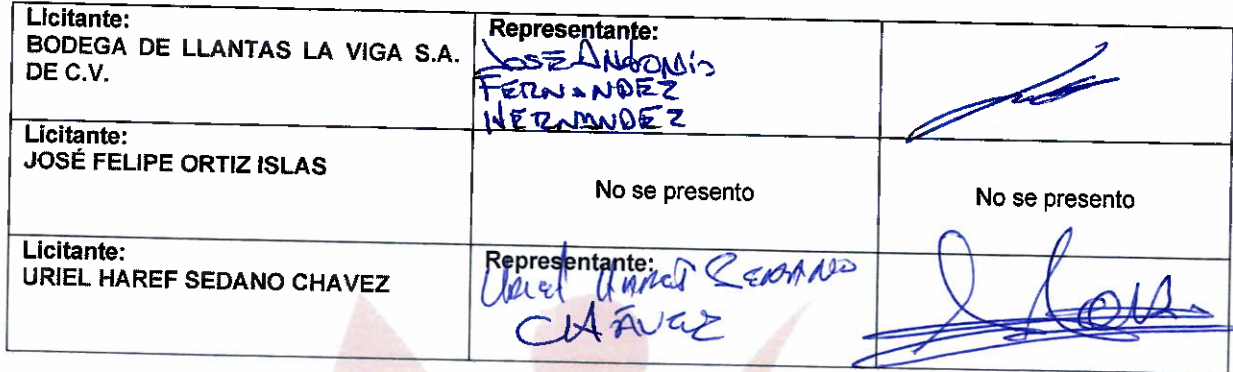 Licitante:
BODEGA DE LLANTAS LA VIGA S.A.
DE C.V.
Representante:
JOSÉ ANTONIO
FERNANDEZ
HERNANDEZ
Licitante:
JOSÉ FELIPE ORTIZ ISLAS
No se presento
No se presento
Licitante:
URIEL HAREF SEDANO CHAVEZ
Representante:
Uriel Haref SEDANO
CHÁVEZ